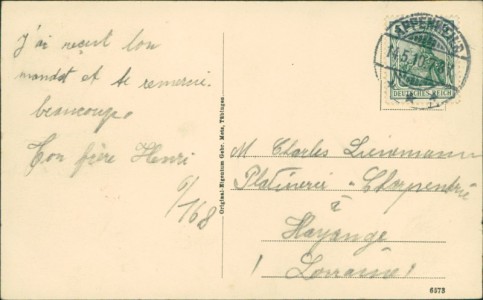 J'ai reçut ton
mandat et te remerci
beaucoup.
Ton frère Henri
6/168
Original-Eigentum Gebr. Metz, Tübingen
APPENWEIER
14.5.10.
DEUTSCHES REICH
M Charles
Platinerie Charpentrie
à
Hayange
! Lorraine !
6373